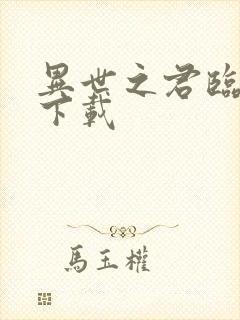 異世之君臨
下載
馬玉權